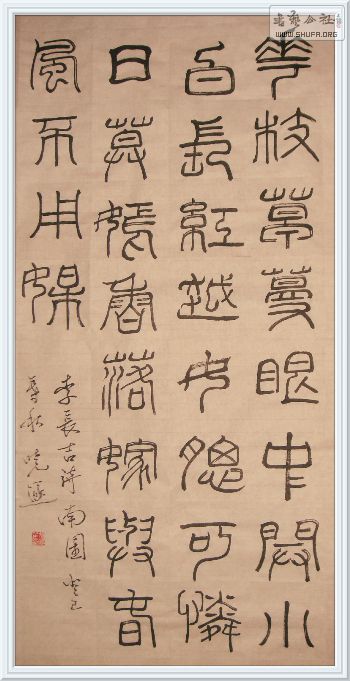 书艺公社
WWW.SHUFA.ORG
華枝草蔓眼中開小
白長紅越女腮可憐
日莫嫣香落嫁與春
風不用媒
李長吉詩南園癸巳
暮秋曉